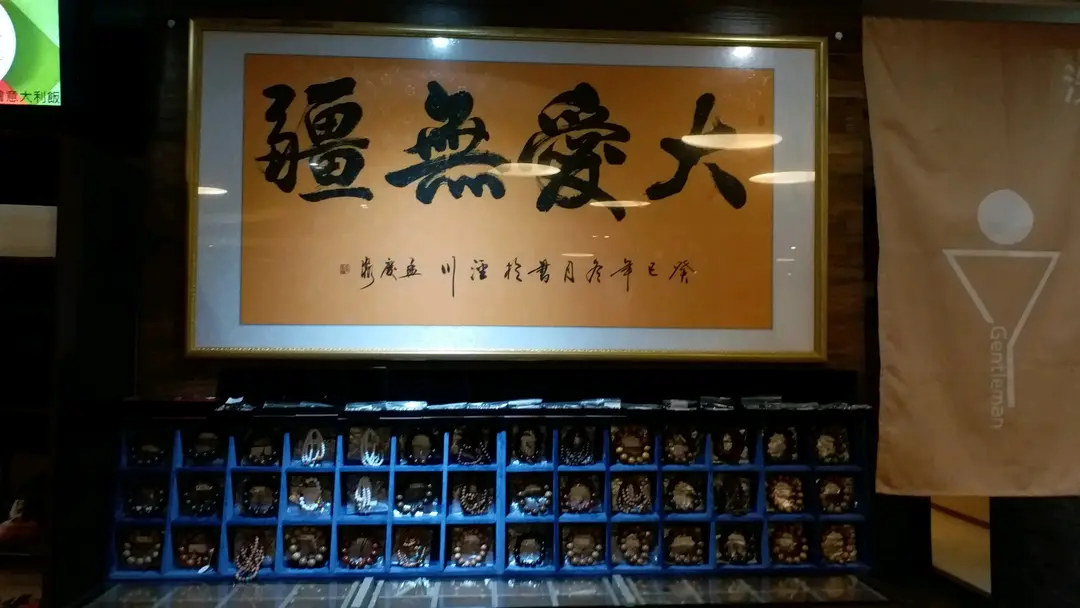 大愛無疆
癸巳年冬月書於涇川
意大利飯
Gentleman